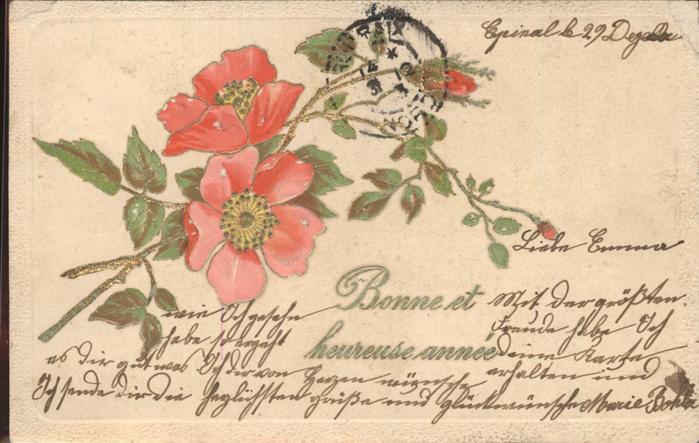 Epinal le 29 Dezember
Liebe Emma
Bonne et
heureuse année
Mit der größten
Freude habe Ich
deine Karte
erhalten und
wie Ich gesehn
habe so ergeht
es dir gut was Ich dir von Herzen wünsche
Ich sende dir die herzlichsten grüße und glückwünsche Marie